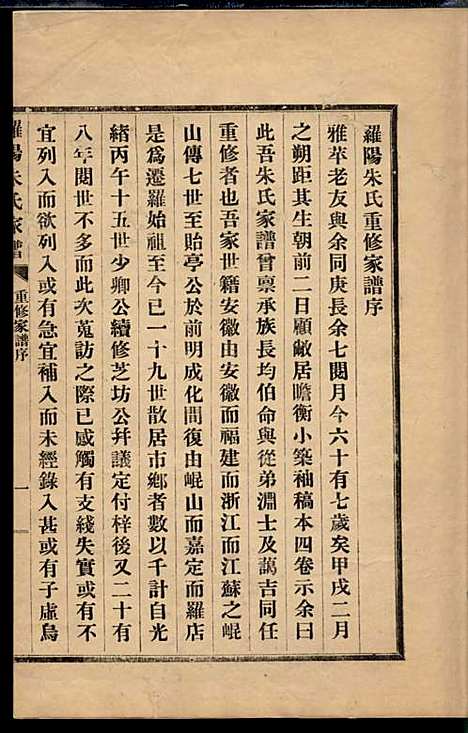 羅陽朱氏重修家譜序
雅苹老友與余同庚長余七閱月今六十有七歲矣甲戌二月
之朔距其生朝前二日顧敝居瞻衡小築袖稿本四卷示余曰
此吾朱氏家譜曾稟承族長均伯命與從弟淵士及藹吉同任
重修者也吾家世籍安徽由安徽而福建而浙江而江蘇之崐
山傳七世至貽亭公於前明成化間復由崐山而嘉定而羅店
是爲遷羅始祖至今已一十九世散居市鄉者數以千計自光
緒丙午十五世少卿公續修芝坊公幷議定付梓後又二十有
八年閱世不多而此次蒐訪之際已感觸有支綫失實或有不
宜列入而欲列入或有急宜補入而未經錄入甚或有子虛烏
羅陽朱氏家譜
重修家譜序
一